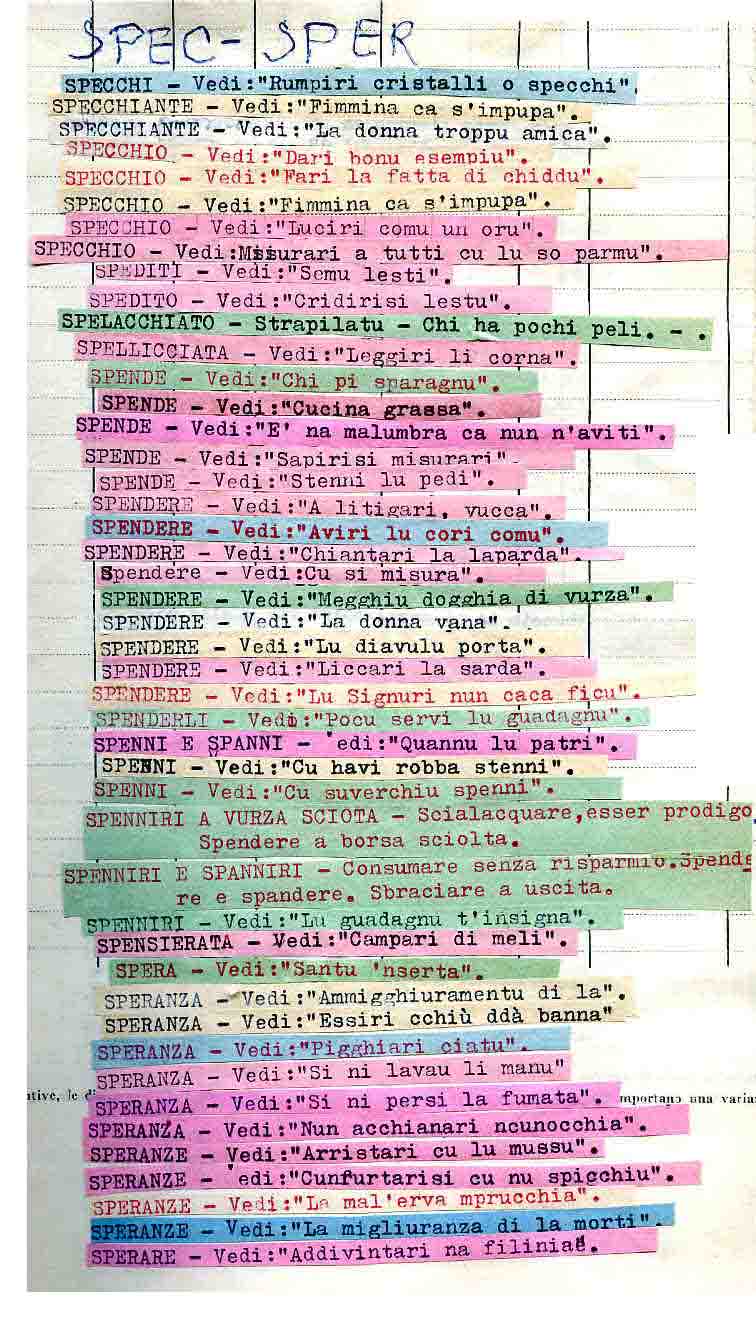 SPEC-SPER
SPECCHI - Vedi:"Rumpiri cristalli o specchi".
SPECCHIANTE - Vedi:"Fimmina ca s'impupa".
SPECCHIANTE - Vedi:"La donna troppu amica".
SPECCHIO - Vedi:"Dari bonu esempiu".
SPECCHIO - Vedi:"Fari la fatta di chiddu".
SPECCHIO - Vedi:"Fimmina ca s'impupa".
SPECCHIO - Vedi:"Luciri comu un oru".
SPECCHIO - Vedi:Misurari a tutti cu lu so parmu".
SPEDITI - Vedi:"Semu lesti".
SPEDITO - Vedi:"Cridirisi lestu".
SPELACCHIATO - Strapilatu - Chi ha pochi peli. - .
SPELLICCIATA - Vedi:"Leggiri li corna".
SPENDE - Vedi:"Chi pi sparagnu".
SPENDE - Vedi:"Cucina grassa".
SPENDE - Vedi:"E' na malumbra ca nun n'aviti".
SPENDE - Vedi:"Sapirisi misurari".
SPENDE - Vedi:"Stenni lu pedi".
SPENDERE - Vedi:"A litigari, vucca".
SPENDERE - Vedi:"Aviri lu cori comu".
SPENDERE - Vedi:"Chiantari la laparda".
Spendere - Vedi:Cu si misura".
SPENDERE - Vedi:"Megghiu dogghia di vurza".
SPENDERE - Vedi:"La donna vana".
SPENDERE - Vedi:"Lu diavulu porta".
SPENDERE - Vedi:"Liccari la sarda".
SPENDERE - Vedi:"Lu Signuri nun caca ficu".
SPENDERLI - Vedi:"Pocu servi lu guadagnu".
SPENNI E SPANNI - 'edi:"Quannu lu patri".
SPENNI - Vedi:"Cu havi robba stenni".
SPENNI - Vedi:"Cu suverchiu spenni".
SPENNIRI A VURZA SCIOTA - Scialacquare,esser prodigo,
Spendere a borsa sciolta.
SPENNIRI E SPANNIRI - Consumare senza risparmio.Spende
re e spandere. Sbraciare a uscita.
SPENNIRI - Vedi:"Lu guadagnu t'insigna".
SPENSIERATA - Vedi:"Campari di meli".
SPERA - Vedi:"Santu 'nserta".
SPERANZA - Vedi:"Ammigghiuramentu di la".
SPERANZA - Vedi:"Essiri cchiù ddà banna"
SPERANZA - Vedi:"Pigghiari ciatu".
SPERANZA - Vedi:"Si ni lavau li manu"
ative, le di
SPERANZA - Vedi:"Si ni persi la fumata".
mportano una varia
SPERANZA - Vedi:"Nun acchianari ncunocchia".
SPERANZE - Vedi:"Arristari cu lu mussu".
SPERANZE - 'edi:"Cunfurtarisi cu nu spicchiu".
SPERANZE - Vedi:"La mal'erva mprucchia".
SPERANZE - Vedi:"La migliuranza di la morti".
SPERARE - Vedi:"Addivintari na filinia".